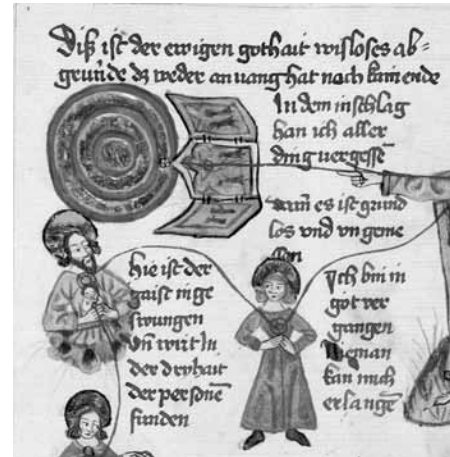 Diß ist der ewigen gothait wisloses ab=
grúnde dz weder anuang hat noch kain ende
In dem inschlag
han ich aller
ding uergessē
wan es ist grund
los und un geme
ssen
hie ist der
gaist in ge
swungen
vn̄ wirt in
der dryhait
der personē
funden
Ich bin in
got ver
gangen
Nieman
kan mich
erlangē